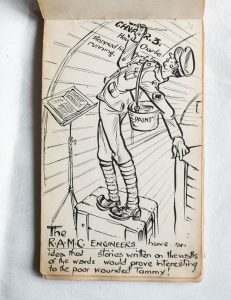 CHAPTER 3.
stopped in
running.
PAINT
The
R.A.M.C. ENGINEERS have an
idea that stories written on the walls
of the wards would prove interesting
to the poor wounded Tommy!